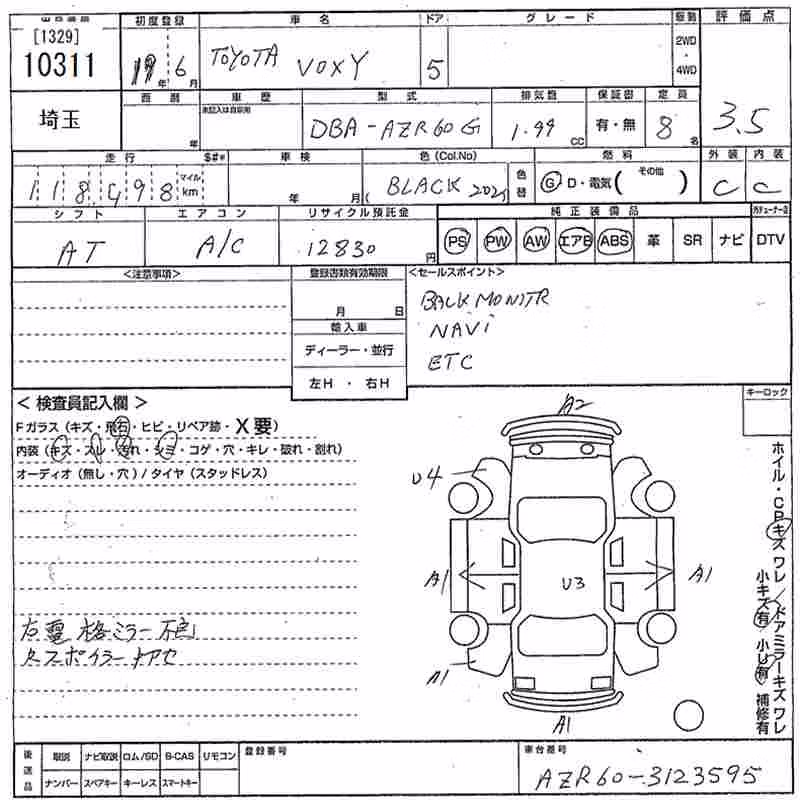 [1329]
10311
初度登録
19年 6月
車名
TOYOTA VOXY
ドア
5
グレード
駆動
2WD
・
4WD
評価点
3.5
埼玉
年
車歴
未記入は自家用
型式
DBA-AZR60G
排気量
1.99 CC
保証書
有・無
定員
8名
走行
118,498
マイル
km
車検
年 月
色(Col.No)
BLACK 202
色替
燃料
G D・電気( その他 )
外装
C
内装
C
シフト
AT
エアコン
A/C
リサイクル預託金
12830円
純正装備品
PS PW AW エアB ABS 革 SR ナビ DTV
<注意事項>
登録書類有効期限
月 日
輸入車
ディーラー・並行
左H ・ 右H
<セールスポイント>
BACK MONITR
NAVI
ETC
<検査員記入欄>
Fガラス(キズ・飛石・ヒビ・リペア跡・X要)
内装(キズ・スレ・汚れ・シミ・コゲ・穴・キレ・破れ・割れ)
オーディオ(無し・穴)/タイヤ(スタッドレス)
キーロック
A2
U4
A1
U3
A1
A1
A1
ホイル・CPキズ ワレ/ドアミラーキズ ワレ
小キズ有 小U有 補修有
ミラー
スポイラー
後送品
取説 ナビ取説 ロム/SD B-CAS リモコン
ナンバー スペアキー キーレス スマートキー
登録番号
車台番号
AZR60-3123595